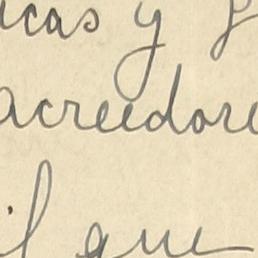 icas y
acreedore
il que